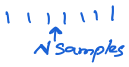 N samples